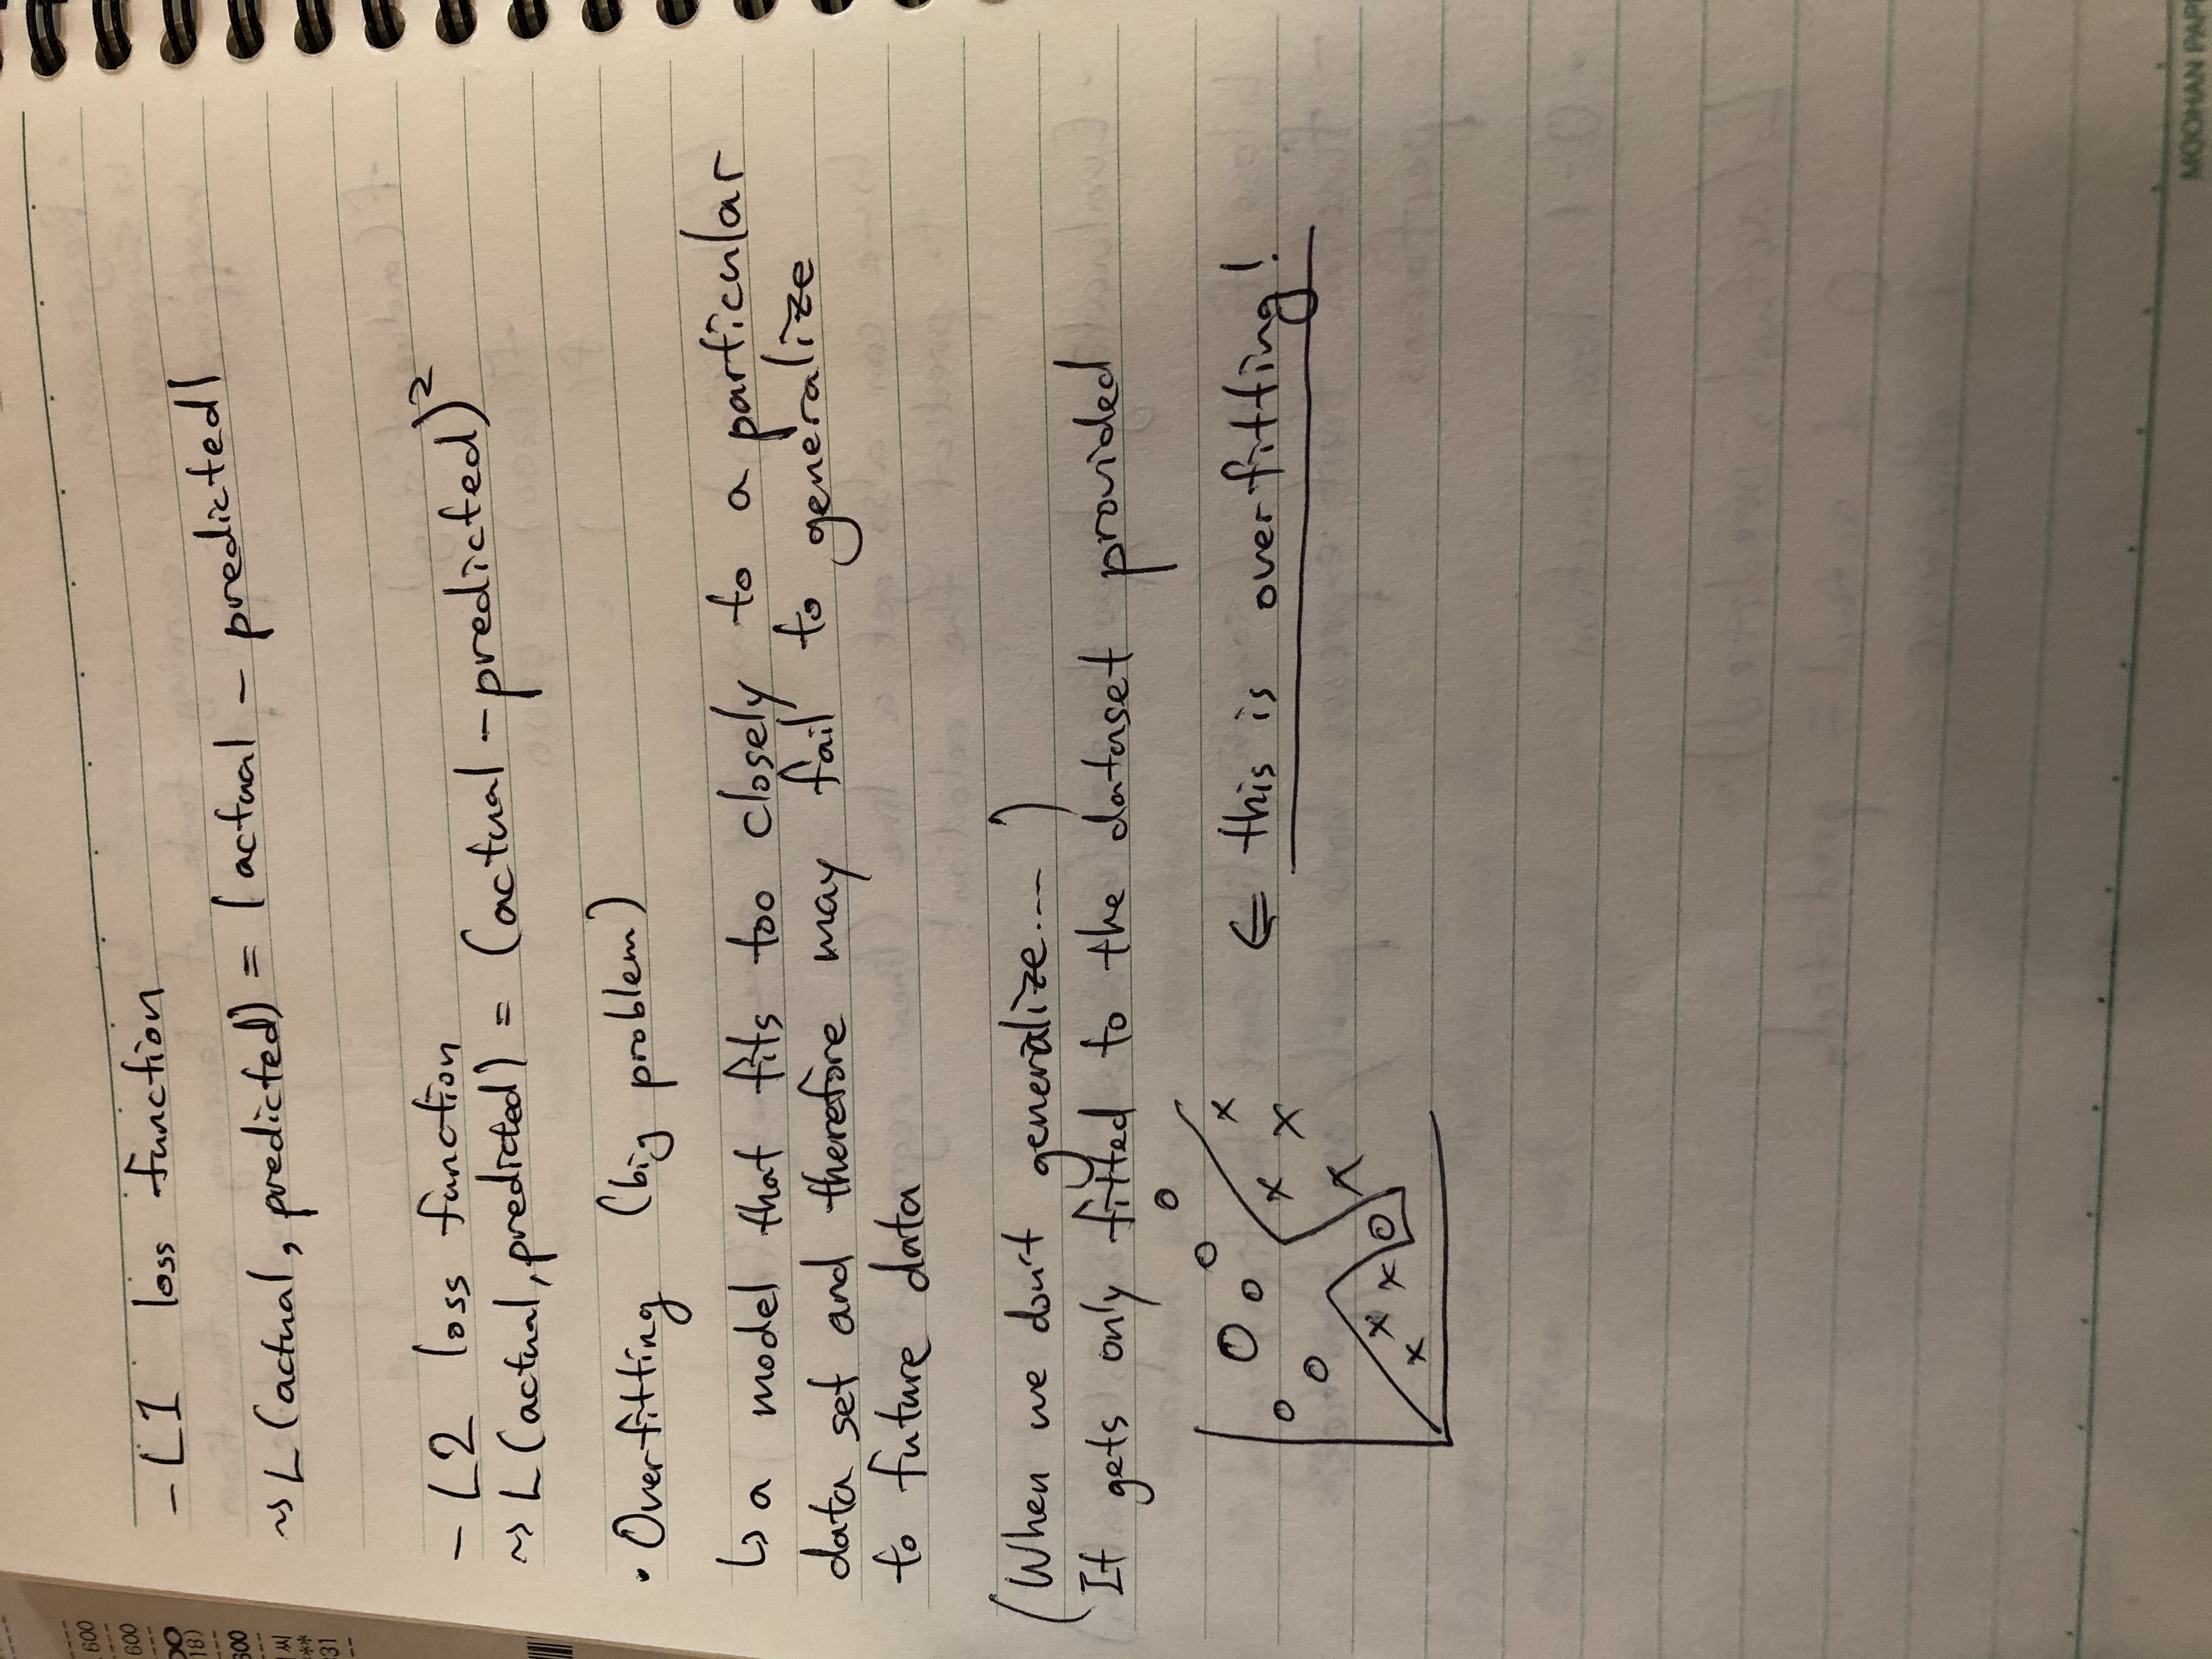 600
600
18)
600
씨
**
331
- L1 loss function
~> L (actual, predicted) = |actual - predicted|
- L2 loss function
~> L (actual, predicted) = (actual - predicted)²
• Overfitting (big problem)
↳ a model that fits too closely to a particular
data set and therefore may fail to generalize
to future data
(When we don't generalize.... )
It gets only fitted to the dataset provided
⇐ this is overfitting!
MOOHAN PAP